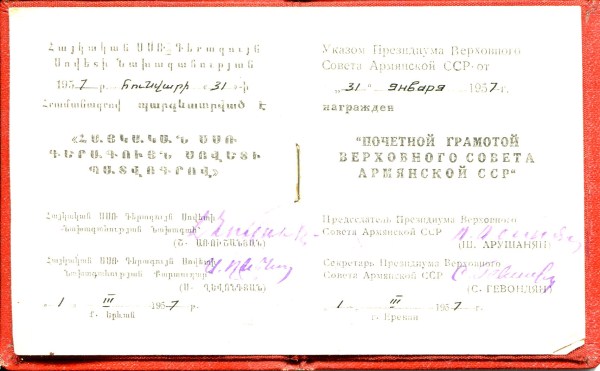 Հայկական ՍՍՌ Գերագույն
Սովետի Նախագահության
1957 թ. հունվարի «31»-ի
Հրամանագրով պարգևատրված է
«ՀԱՅԿԱԿԱՆ ՍՍՌ
ԳԵՐԱԳՈՒՅՆ ՍՈՎԵՏԻ
ՊԱՏՎՈԳՐՈՎ»
Հայկական ՍՍՌ Գերագույն Սովետի
Նախագահության Նախագահ
(Շ. ԱՌՈՒՇԱՆՅԱՆ)
Հայկական ՍՍՌ Գերագույն Սովետի
Նախագահության Քարտուղար
(Ս. ՂԵՎՈՆԴՅԱՆ)
1 III 1957 թ.
ք. Երևան
Указом Президиума Верховного
Совета Армянской ССР от
„31“ января 1957 г.
награжден
"ПОЧЕТНОЙ ГРАМОТОЙ
ВЕРХОВНОГО СОВЕТА
АРМЯНСКОЙ ССР"
Председатель Президиума Верховного
Совета Армянской ССР
(Ш. АРУШАНЯН)
Секретарь Президиума Верховного
Совета Армянской ССР
(С. ГЕВОНДЯН)
1 III 1957 г.
г. Ереван